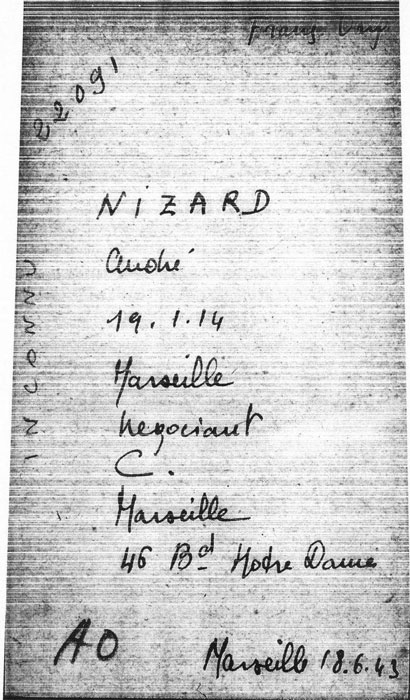 22091
NIZARD
André
19.1.14
Marseille
negociant
C.
Marseille
46 Bd Notre Dame
INCONNU
AO
Marseille 18.6.43